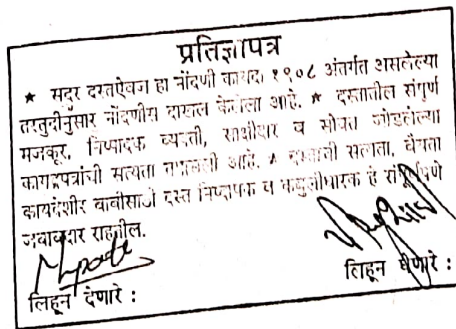 प्रतिज्ञापत्र
★ सदर दस्तऐवज हा नोंदणी कायदा १९०८ अंतर्गत असलेल्या
तरतुदीनुसार नोंदणीस दाखल केलेला आहे. ★ दस्तातील संपुर्ण
मजकूर, निष्पादक व्यक्ती, साक्षीदार व सोबत जोडलेल्या
कागदपत्रांची सत्यता तपासली आहे. ★ दस्ताची सत्यता, वैधता
कायदेशीर बाबीसाठी दस्त निष्पादक व कबुलीधारक हे संपुर्णपणे
जबाबदार राहतील.
लिहून देणारे :
लिहून घेणारे :